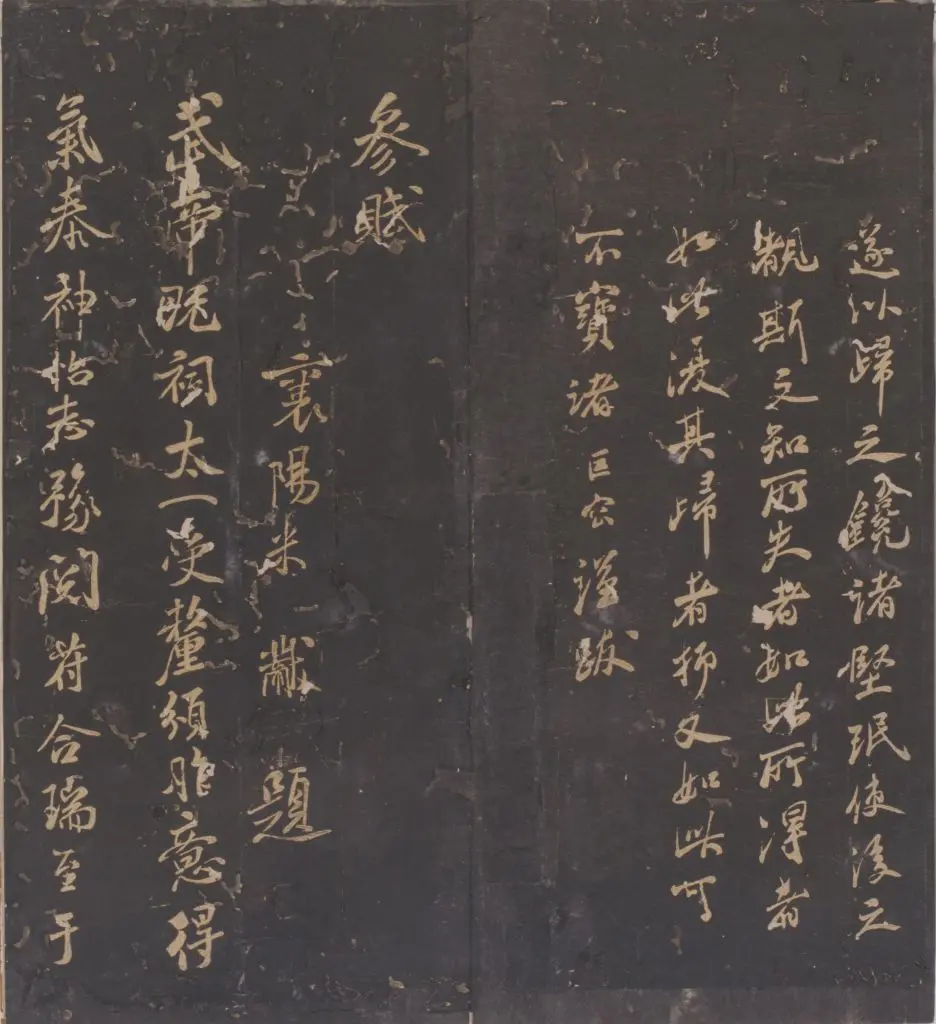 遂以歸之鐫諸堅珉使後之
觀斯文知所失者如此所得者
如此漫其歸者抑又如此可
不寶諸巨容謹跋
參賦
襄陽米黻題
武帝既祠太一受釐頒胙意得
氣泰神怡志豫閱符合瑞至于